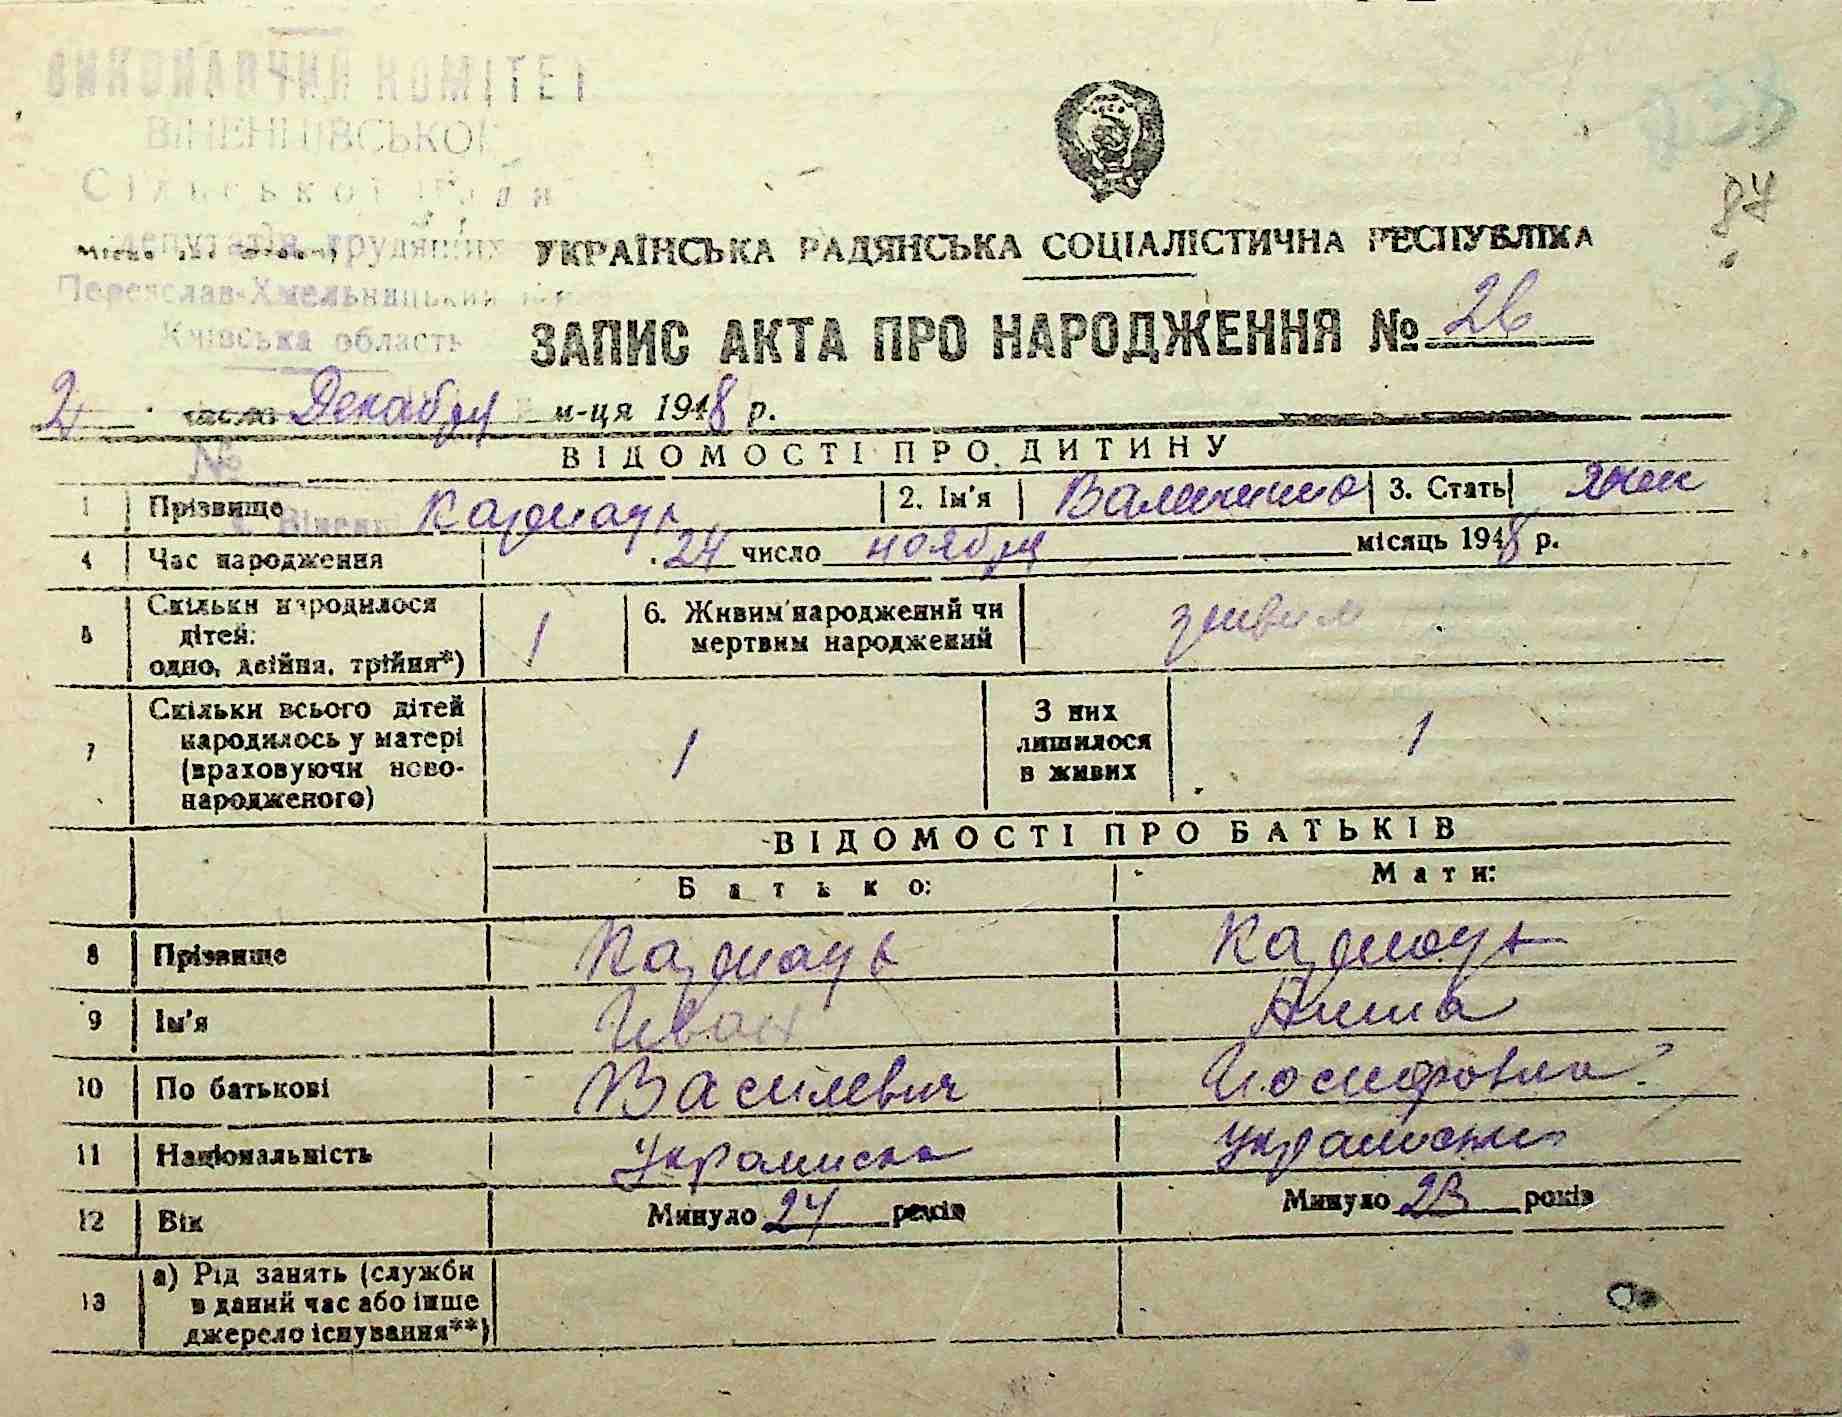 ВИКОНАВЧИЙ КОМІТЕТ
Сільської Ради
депутатів трудящих
Переяслав-Хмельницький
Київська область
87
УКРАЇНСЬКА РАДЯНСЬКА СОЦІАЛІСТИЧНА РЕСПУБЛІКА
ЗАПИС АКТА ПРО НАРОДЖЕННЯ № 26
2 число Декабря м-ця 1948 р.
№
ВІДОМОСТІ ПРО ДИТИНУ
1 Прізвище 2. Ім'я 3. Стать жен
4 Час народження 24 число ноября місяць 1948 р.
5 Скільки народилося дітей: одно, двійня, трійня*) 1 6. Живим народжений чи мертвим народжений живим
7 Скільки всього дітей народилось у матері (враховуючи новонародженого) 1 З них лишилося в живих 1
ВІДОМОСТІ ПРО БАТЬКІВ
Батько: Мати:
8 Прізвище
9 Ім'я Иван Анна
10 По батькові Василевич Иосифовна
11 Національність
12 Вік Минуло 24 років Минуло 23 років
13 а) Рід занять (служби в даний час або інше джерело існування**)